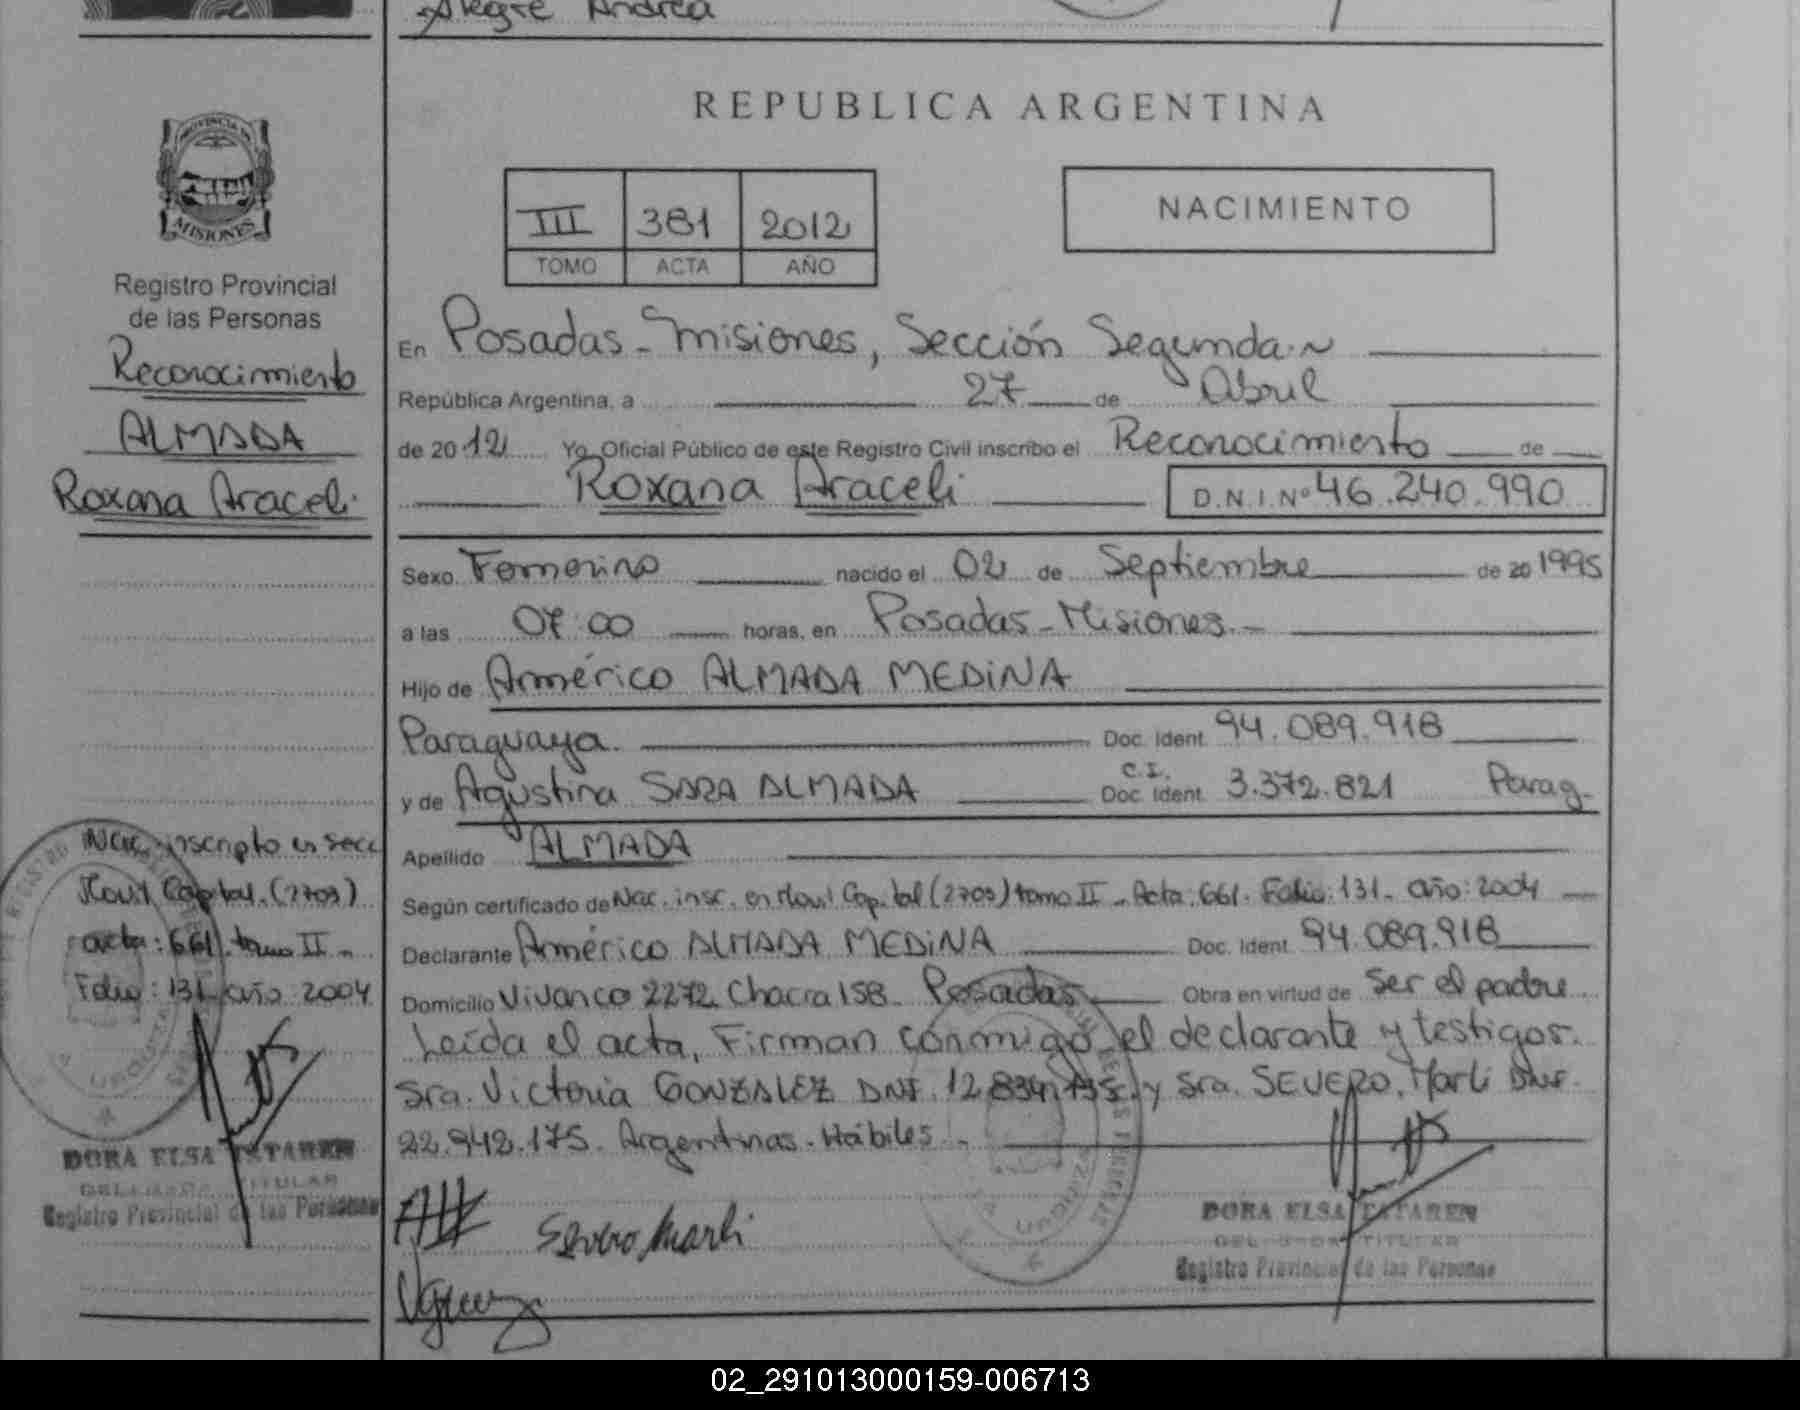 Alegre Andrea
REPUBLICA ARGENTINA
PROVINCIA DE
MISIONES
Registro Provincial
de las Personas
Reconocimiento
ALMADA
Roxana Araceli
III 381 2012
TOMO ACTA AÑO
NACIMIENTO
En Posadas - Misiones, Sección Segunda
República Argentina, a 27 de Abril
de 2012 Yo Oficial Público de este Registro Civil inscribo el Reconocimiento de
Roxana Araceli D.N.I. Nº 46.240.990
Sexo Femenino nacido el 02 de Septiembre de 20 1995
a las 07:00 horas, en Posadas - Misiones.-
Hijo de Américo ALMADA MEDINA
Paraguaya. Doc. Ident. 94.089.918
y de Agustina SARA ALMADA C.I. Doc. Ident. 3.372.821 Parag-
Apellido ALMADA
Según certificado de Nac. insc. en Movil Capital (2709) tomo II - Acta: 661. Folio: 131- año: 2004
Declarante Américo ALMADA MEDINA Doc. Ident. 94.089.918
Domicilio Vivanco 2272 Chacra 158- Posadas Obra en virtud de Ser el padre
Leída el acta, Firman conmigo el declarante y testigos.
Sra. Victoria GONZALEZ DNI. 12.834.735. y Sra. SEVERO, Marli DNI.
22.942.175. Argentinas. Hábiles
Severo Marli
Nac. inscripto en secc
Movil Capital. (2709)
acta: 661. tomo II -
Folio: 131 año: 2004
DORA ELSA TATAREN
DELEGADA TITULAR
Registro Provincial de las Personas
DORA ELSA TATAREN
DELEGADA TITULAR
Registro Provincial de las Personas
02_291013000159-006713